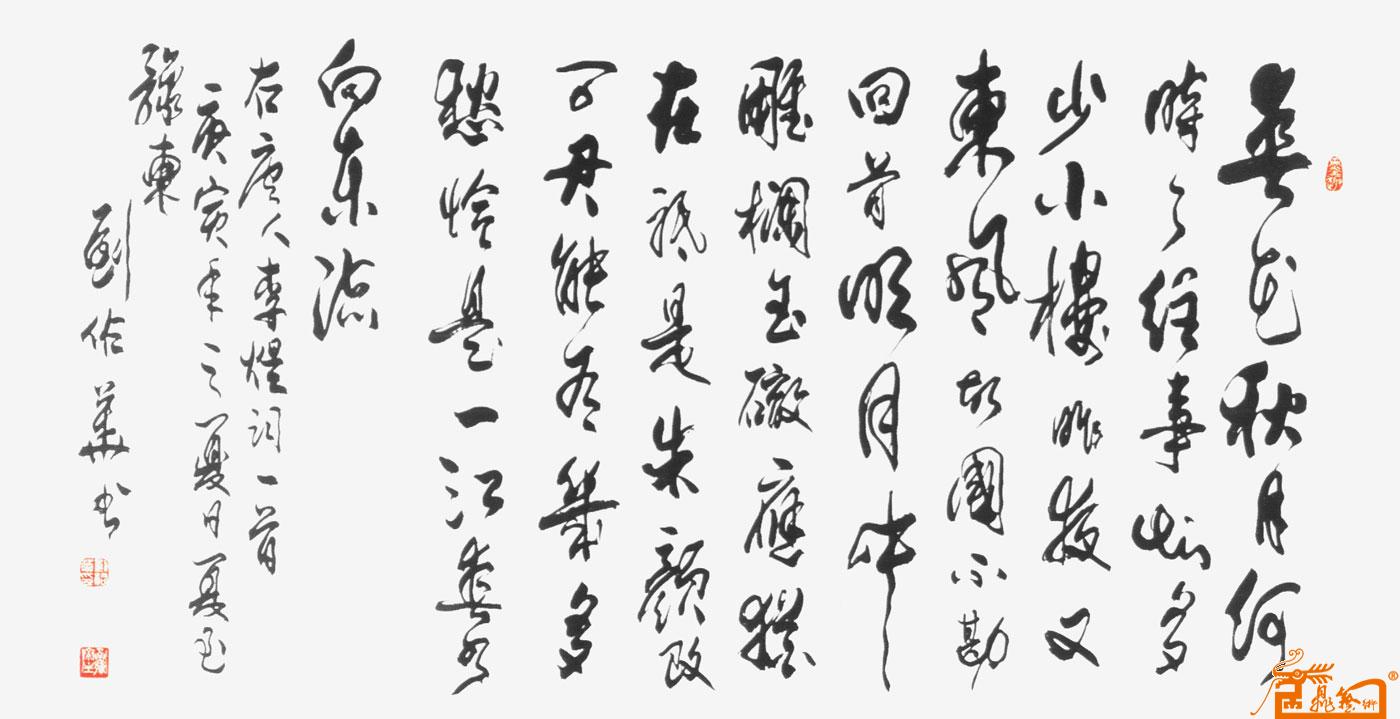 春花秋月何
時了往事知多
少小樓昨夜又
東風故國不勘
回首明月中
雕欄玉砌應猶
在祗是朱顏改
问君能有幾多
愁恰是一江春水
向东流
右唐人李煜词一首
庚寅年之夏日夏至
豫東
劉華书
藝術
®